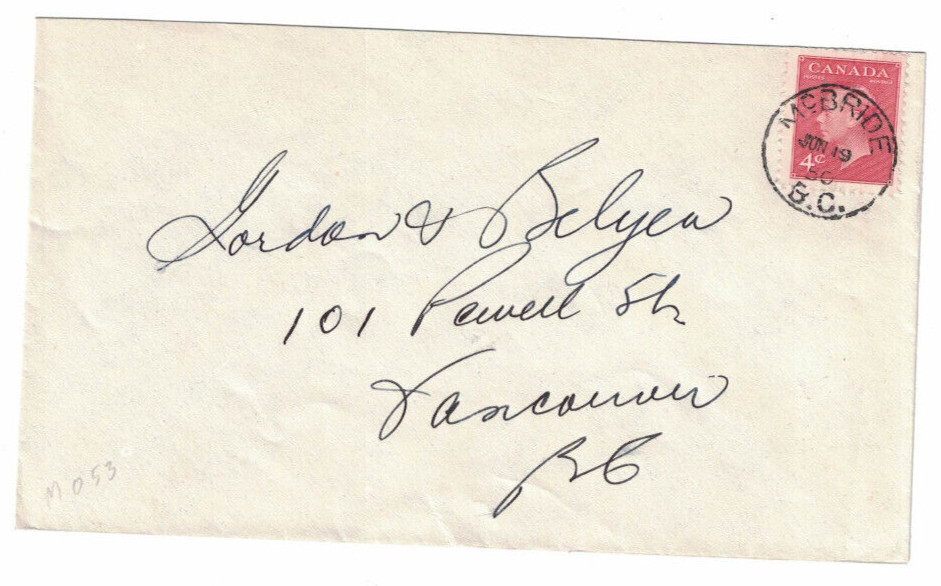 CANADA
POSTES POSTAGE
McBRIDE
JUN 19
50
4¢
B.C.
Gordon & Belyea
101 Powell St.
Vancouver
BC
M053